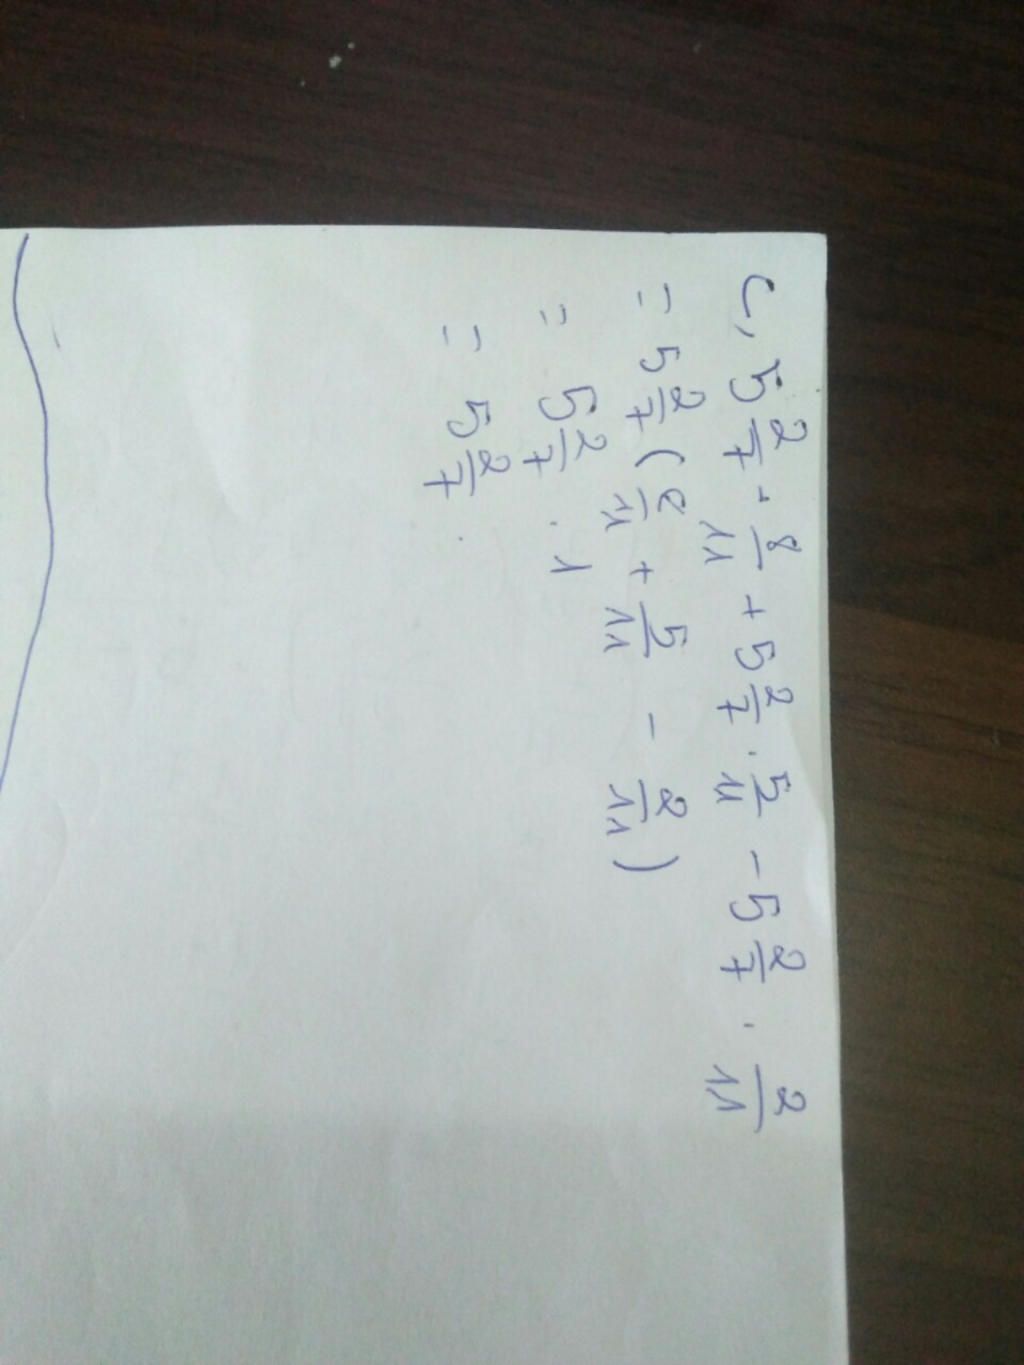 c, 5 2/7 . 8/11 + 5 2/7 . 5/11 - 5 2/7 . 2/11
= 5 2/7 ( 8/11 + 5/11 - 2/11 )
= 5 2/7 . 1
= 5 2/7 .